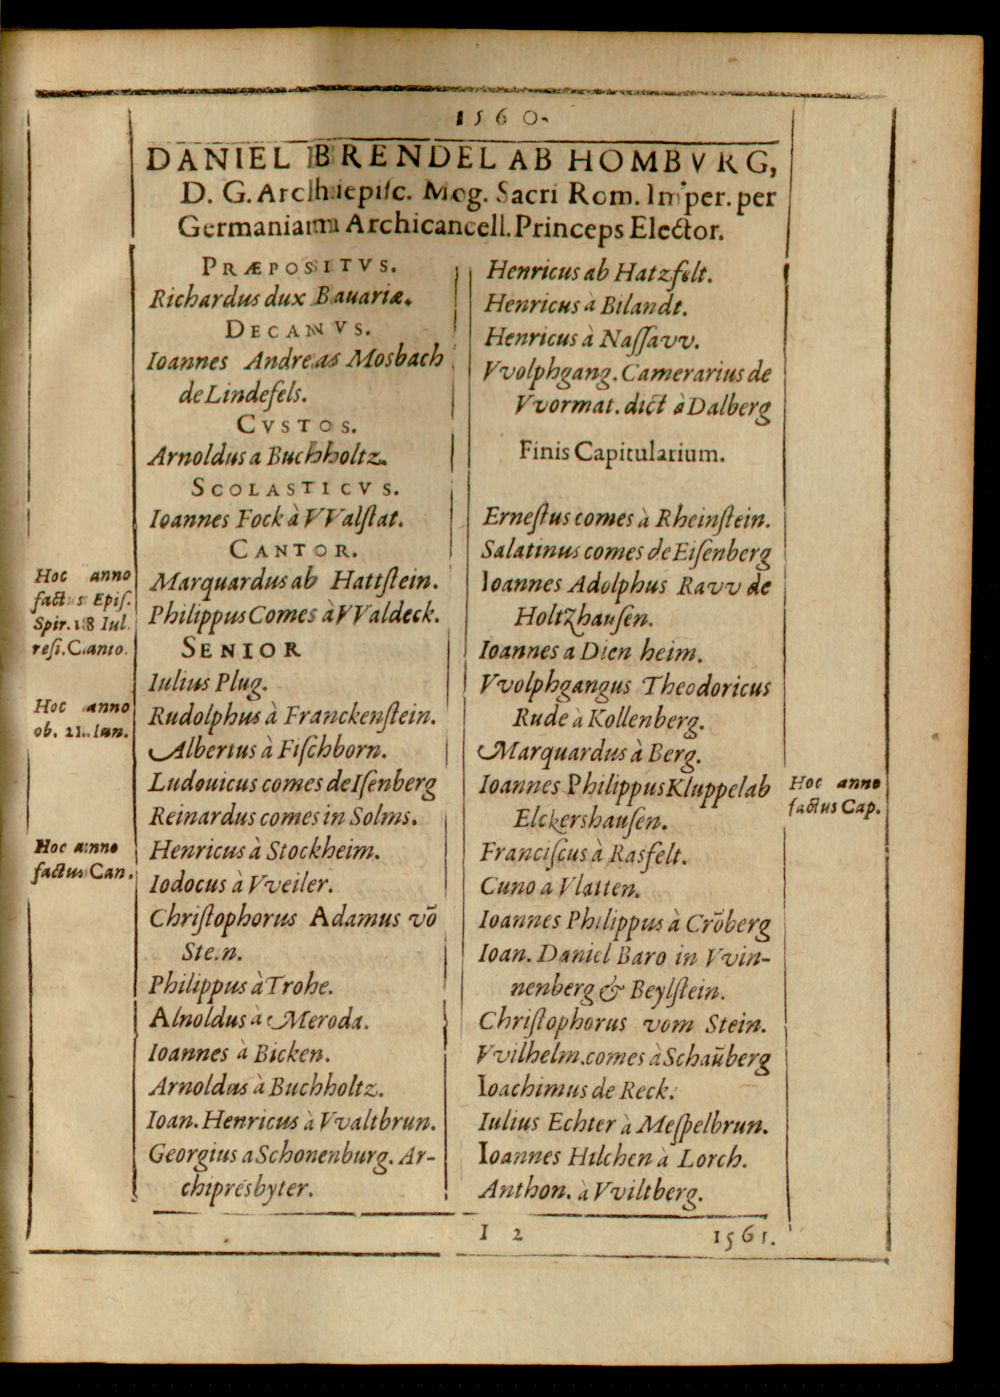 1560.
DANIEL BRENDEL AB HOMBVRG,
D. G. Archiepisc. Mog. Sacri Rom. Imper. per
Germaniam Archicancell. Princeps Elector.
PRÆPOSITVS.
Richardus dux Bauariæ.
DECANVS.
Ioannes Andreas Mosbach
de Lindefels.
CVSTOS.
Arnoldus a Buchholtz.
SCOLASTICVS.
Ioannes Fock à VValſtat.
CANTOR.
Hoc anno
factus Epiſ.
Spir. 18 Iul.
reſi. Canto.
Marquardus ab Hattſtein.
Philippus Comes à VValdeck.
SENIOR
Iulius Plug.
Hoc anno
ob. 21. Ian.
Rudolphus à Franckenſtein.
Albertus à Fiſchborn.
Ludouicus comes de Iſenberg
Reinardus comes in Solms.
Hoc anno
factus Can.
Henricus à Stockheim.
Iodocus à Vveiler.
Chriſtophorus Adamus vō
Stein.
Philippus à Trohe.
Alnoldus à Meroda.
Ioannes à Bicken.
Arnoldus à Buchholtz.
Ioan. Henricus à Vvaltbrun.
Georgius a Schonenburg. Ar-
chipresbyter.
Henricus ab Hatzfelt.
Henricus à Bilandt.
Henricus à Naſſavv.
Vvolphgang. Camerarius de
Vvormat. dict à Dalberg
Finis Capitularium.
Erneſtus comes à Rheinſtein.
Salatinus comes de Eiſenberg
Ioannes Adolphus Ravv de
Holtzhauſen.
Ioannes a Dien heim.
Vvolphgangus Theodoricus
Rude à Kollenberg.
Marquardus à Berg.
Ioannes Philippus Kluppel ab
Elckershauſen.
Hoc anno
factus Cap.
Franciſcus à Rasfelt.
Cuno a Vlatten.
Ioannes Philippus à Crōberg
Ioan. Daniel Baro in Vvin-
nenberg & Beylſtein.
Chriſtophorus vom Stein.
Vvilhelm. comes à Schaūberg
Ioachimus de Reck.
Iulius Echter à Meſpelbrun.
Ioannes Hilchen à Lorch.
Anthon. à Vviltberg.
I 2
1561.